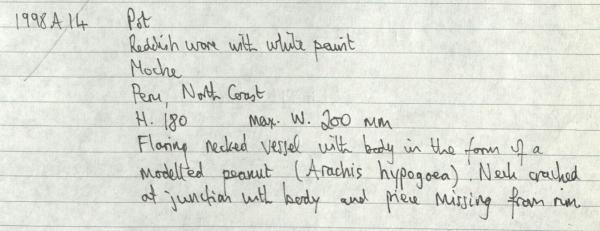 1998 A 14 Pot
Reddish ware with white paint
Moche
Peru, North Coast
H. 180 max. W. 200 mm
Flaring necked vessel with body in the form of a
modelled peanut (Arachis hypogoea). Neck cracked
at junction with body and piece missing from rim